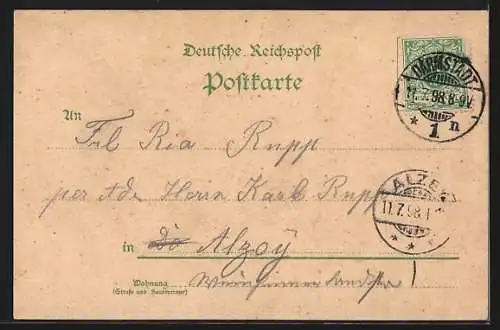 Deutsche Reichspost
Postkarte
DARMSTADT
11.7.98.8-9V.
* 1 n
An
Frl Ria Rupp
per Adr Herrn Karl Rupp
ALZEY
11.7.98.1
* *
in Do Alzey
Wohnung
(Straße und Hausnummer)